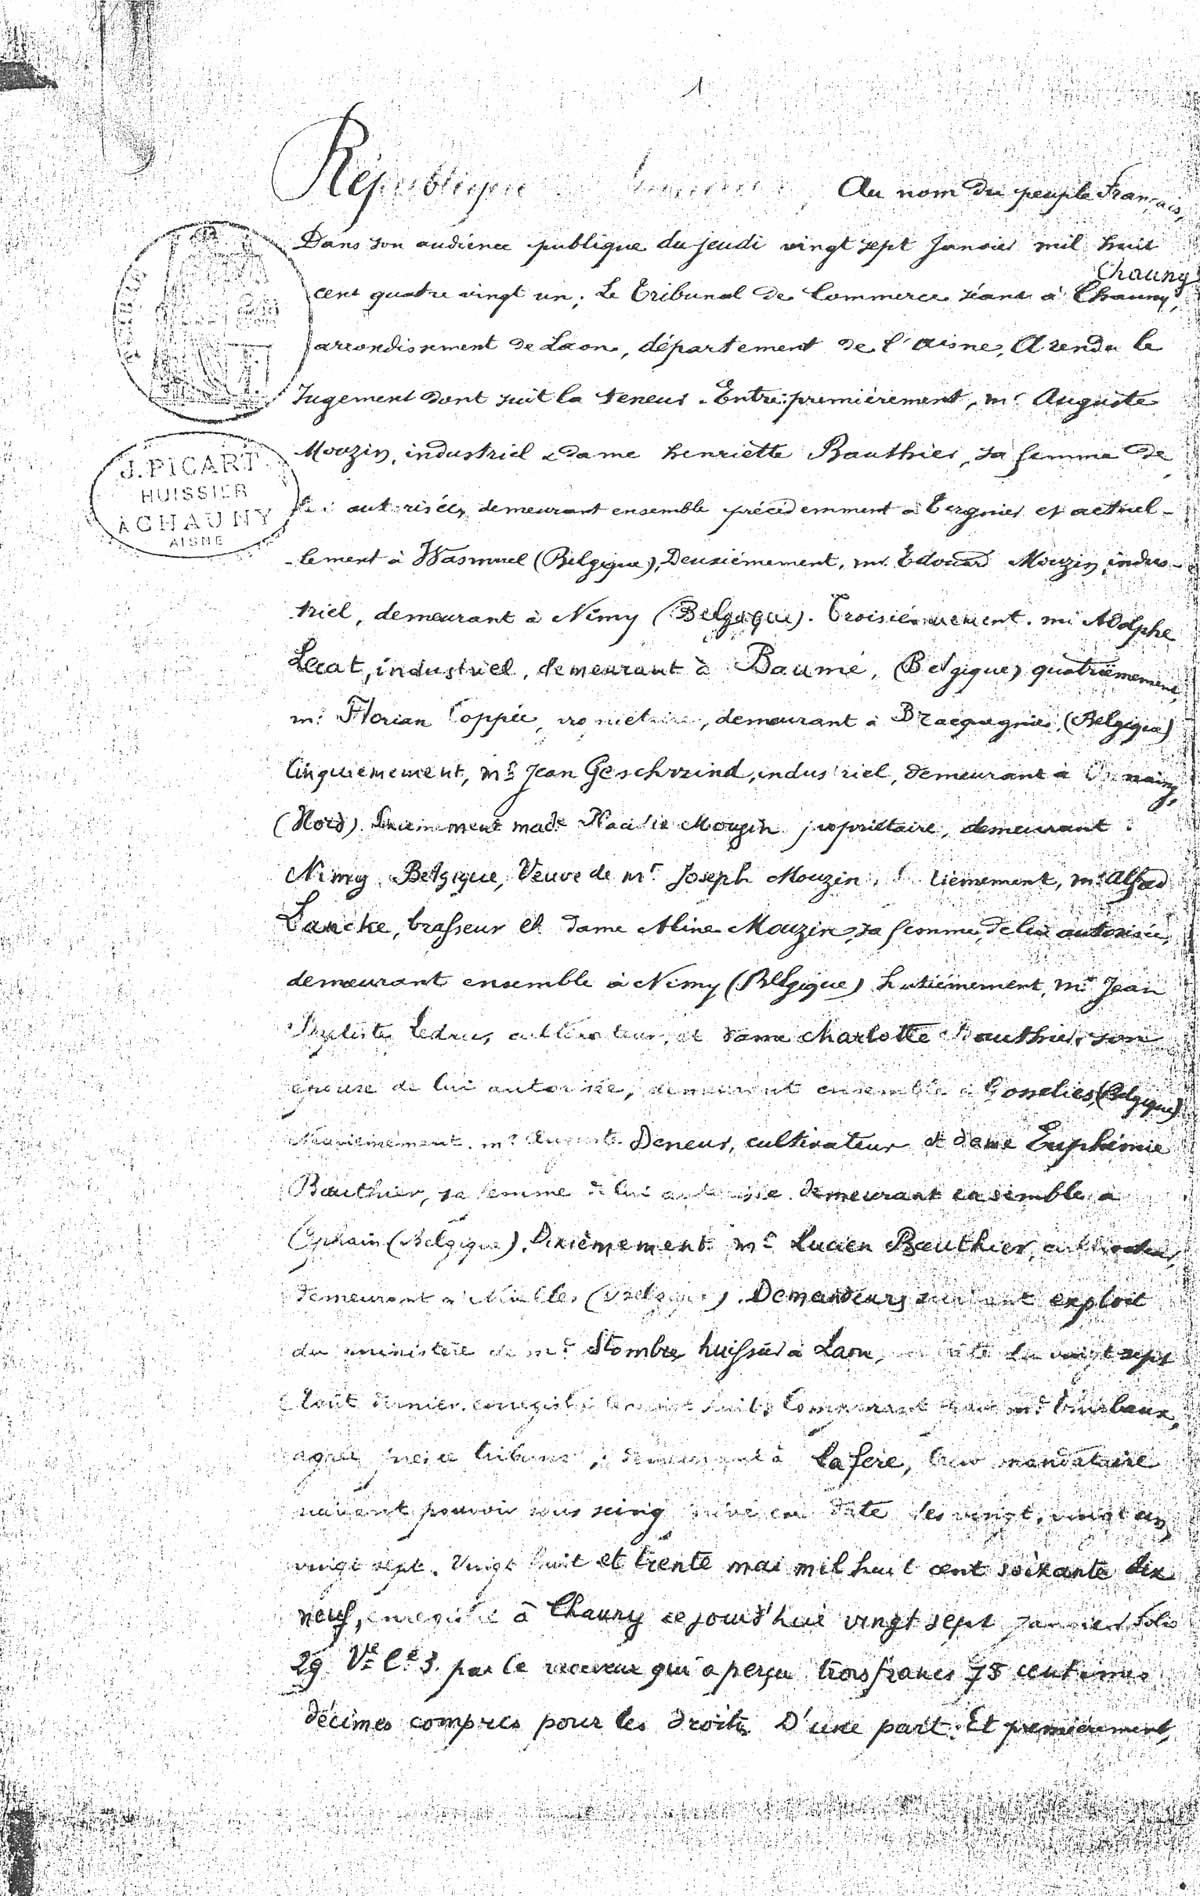 1
République
Au nom du peuple Français,
Dans son audience publique du jeudi vingt sept Janvier mil huit
Chauny
cent quatre vingt un; Le Tribunal de Commerce séant à Chauny,
arrondissement de Laon, département de l'aisne, A rendu le
Jugement dont suit la teneur. Entre: premièrement, mr Auguste
Mouzin, industriel & dame henriette Bauthier, sa femme de
lui autorisée, demeurant ensemble précédemment à Tergnier et actuel-
-lement à Wasmuel (Belgique), Deuxièmement, mr Edouard Mouzin, indus-
triel, demeurant à Nimy (Belgique). Troisièmement. mr Adolphe
Lecat, industriel, demeurant à Baumé, (Belgique) quatrièmement,
mr Florian Coppée, propriétaire, demeurant à Bracquegnies, (Belgique)
Cinquièmement, mr Jean Geschwind, industriel, demeurant à
(Nord) made Mougin propriétaire, demeurant
Nimy Belgique, Veuve de mr Joseph Mouzin, mr Alfred
Lancke, brasseur et dame Aline Mouzin, sa femme, de lui autorisée,
demeurant ensemble à Nimy (Belgique) huitièmement, mr Jean
Baptiste Ledrus, cultivateur, et dame Charlotte Bauthier, son
épouse de lui autorisée, demeurant ensemble à Gosselies, (Belgique)
Neuvièmement. mr Auguste Deneur, cultivateur et dame Euphémie
Bauthier, sa femme de lui autorisée demeurant ensemble à
Ophain (Belgique). Dixièmement mr Lucien Bauthier, cultivateur,
demeurant à Nivelles (Belgique). Demandeurs suivant exploit
du ministère de mr Stombe, huissier à Laon, en date du vingt sept
Août dernier, enregistré Comparant par mr
agréé près ce tribunal, demeurant à Lafère, leur mandataire
suivant pouvoir sous seing privé en date des vingt, vingt un,
vingt sept, Vingt huit et trente mai mil huit cent soixante dix
neuf, enregistré à Chauny ce jourd'hui vingt sept Janvier folio
29 Vo Ce 3. par le receveur qui a perçu trois francs 75 centimes
décimes compris pour les droits. D'une part. Et premièrement,
J. PICART
HUISSIER
À CHAUNY
AISNE